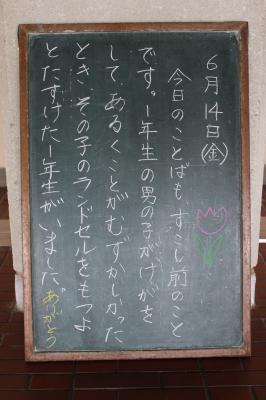 6月14日(金)
今日のことばも、すこし前のこと
です。1年生の男の子がけがを
して、あるくことがむずかしかった
とき、その子のランドセルをもつよ
とたすけた1年生がいました。ありがとう